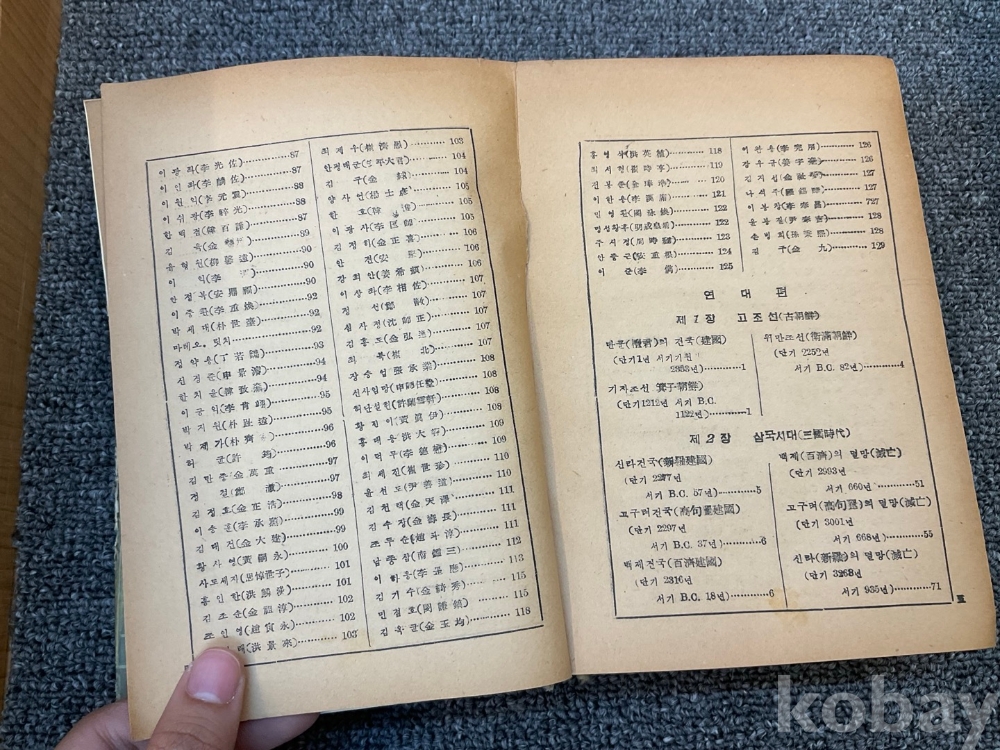 이 광 좌(李光佐)……………87
이 인 좌(李麟佐)……………87
이 원 익(李元翼)……………88
이 쉬 광(李睟光)……………88
한 백 겸(韓百謙)……………89
김 육(金堉)……………89
유 형 원(柳馨遠)……………90
이 익(李瀷)……………90
안 정 복(安鼎福)……………90
이 중 환(李重煥)……………92
박 세 당(朴世堂)……………92
마테오。 릿치……………92
정 약 용(丁若鏞)……………93
신 경 준(申景濬)……………94
한 치 윤(韓致奫)……………94
이 긍 익(李肯翊)……………95
박 지 원(朴趾源)……………95
박 제 가(朴齊家)……………96
허 균(許筠)……………96
김 만 중(金萬重)……………97
정 철(鄭澈)……………98
김 정 호(金正浩)……………98
이 승 훈(李承薰)……………99
김 대 건(金大建)……………99
황 사 영(黃嗣永)……………100
사도세자(思悼世子)……………101
홍 인 한(洪麟漢)……………101
김 조 순(金祖淳)……………102
조 인 영(趙寅永)……………102
래(洪景來)……………103
최 제 우(崔濟愚)……………103
104
김 구(金絿)……………104
양 사 언(楊士彦)……………105
한 호(韓濩)……………105
이 광 사(李匡師)……………105
김 정 희(金正喜)……………106
안 견(安堅)……………106
강 희 안(姜希顔)……………106
이 상 좌(李相佐)……………107
정 선(鄭敾)……………107
심 사 정(沈師正)……………107
김 홍 도(金弘道)……………107
최 북(崔北)……………108
장 승 업(張承業)……………108
신사임당(申師任堂)……………108
허난설헌(許蘭雪軒)……………108
황 진 이(黃眞伊)……………109
홍 대 용(洪大容)……………109
이 덕 무(李德懋)……………110
최 세 진(崔世珍)……………110
윤 선 도(尹善道)……………111
김 천 택(金天澤)……………111
김 수 장(金壽長)……………111
조 두 순(趙斗淳)……………112
남 종 삼(南鍾三)……………113
이 하 응(李昰應)……………115
김 기 수(金綺秀)……………115
민 겸 호(閔謙鎬)……………115
김 옥 균(金玉均)……………118
홍 영 식(洪英植)……………118
최 시 형(崔時亨)……………119
전 봉 준(全琫準)……………120
이 한 응(李漢應)……………121
민 영 환(閔泳煥)……………122
명성황후(明成皇后)……………122
주 시 경(周時經)……………123
안 중 근(安重根)……………124
이 준(李儁)……………125
이 완 용(李完用)……………126
장 우 규(姜宇奎)……………126
김 지 섭(金祉燮)……………127
나 석 주(羅錫疇)……………127
이 봉 창(李奉昌)……………727
윤 봉 길(尹奉吉)……………128
손 병 희(孫秉熙)……………128
김 구(金九)……………129
연 대 편
제 1 장 고조선(古朝鮮)
단군(檀君)의 건국(建國)
(단기1년 서기기원
2333년)……………1
기자조선(箕子朝鮮)
(단기1212년 서기 B.C.
1122년)……………1
위만조선(衛滿朝鮮)
(단기 2252년
서기 B.C. 82년)……………4
제 2 장 삼국시대(三國時代)
신라건국(新羅建國)
(단기 2277년
서기 B.C. 57년)……………5
고구려건국(高句麗建國)
(단기 2297년
서기 B.C. 37년)……………6
백제건국(百濟建國)
(단기 2316년
서기 B.C. 18년)……………6
백제(百濟)의 멸망(滅亡)
(단기 2993년
서기 660년)……………51
고구려(高句麗)의 멸망(滅亡)
(단기 3001년
서기 668년)……………55
신라(新羅)의 멸망(滅亡)
(단기 3268년
서기 935년)……………71
kobay